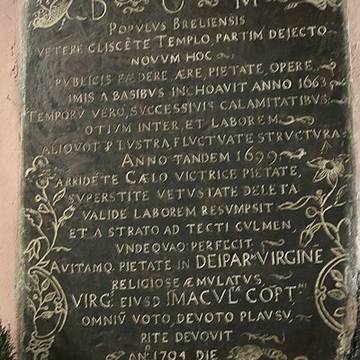 D O M
POPVLVS BRELIENSIS
VETERE CLISCĒTE TEMPLO, PARTIM DEJECTO
NOVUM HOC
PVBLICIS FÆDERE, ÆRE, PIETATE, OPERE,
IMIS A BASIBVS INCHOAVIT ANNO 1663
TEMPORŪ VERO, SVCCESSIVIS CALAMITATIBUS
OTIUM INTER, ET LABOREM
ALIQVOT P LVSTRA, FLVCTVATE STRVCTVRA
ANNO TANDEM 1699
ARRIDĒTE CÆLO VICTRICE PIETATE,
SVPERSTITE VETVSTATE DELETA
VALIDE LABOREM RESVMPSIT
ET A STRATO AD TECTI CVLMEN
VNDEQVAQ PERFECIT
AVITAMQ. PIETATE IN DEIPARĀ VIRGINĒ
RELIGIOSE ÆMVLATVS
VIRG. EIVSD IMACUL. COPT.
OMNIV̄ VOTO, DEVOTO PLAVSV
RITE DEVOVIT
AN. 1704 DIE